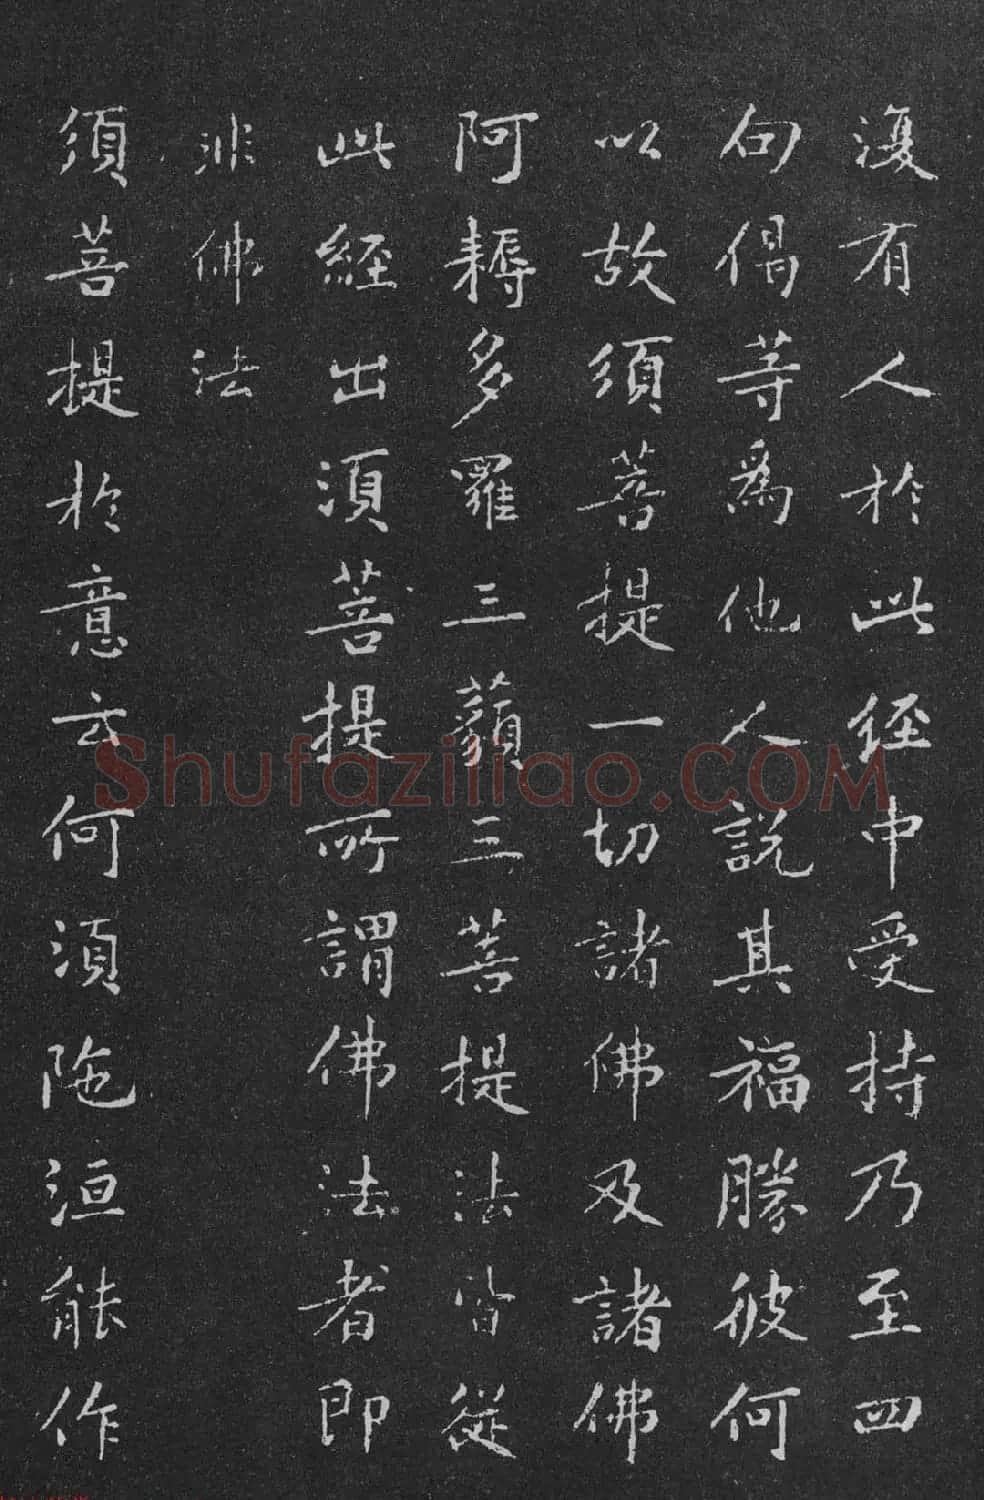 復有人於此經中受持乃至四
句偈等為他人說其福勝彼何
以故須菩提一切諸佛及諸佛
阿耨多羅三藐三菩提法皆從
此經出須菩提所謂佛法者即
非佛法
須菩提於意云何須陁洹能作
Shufaziliao.COM